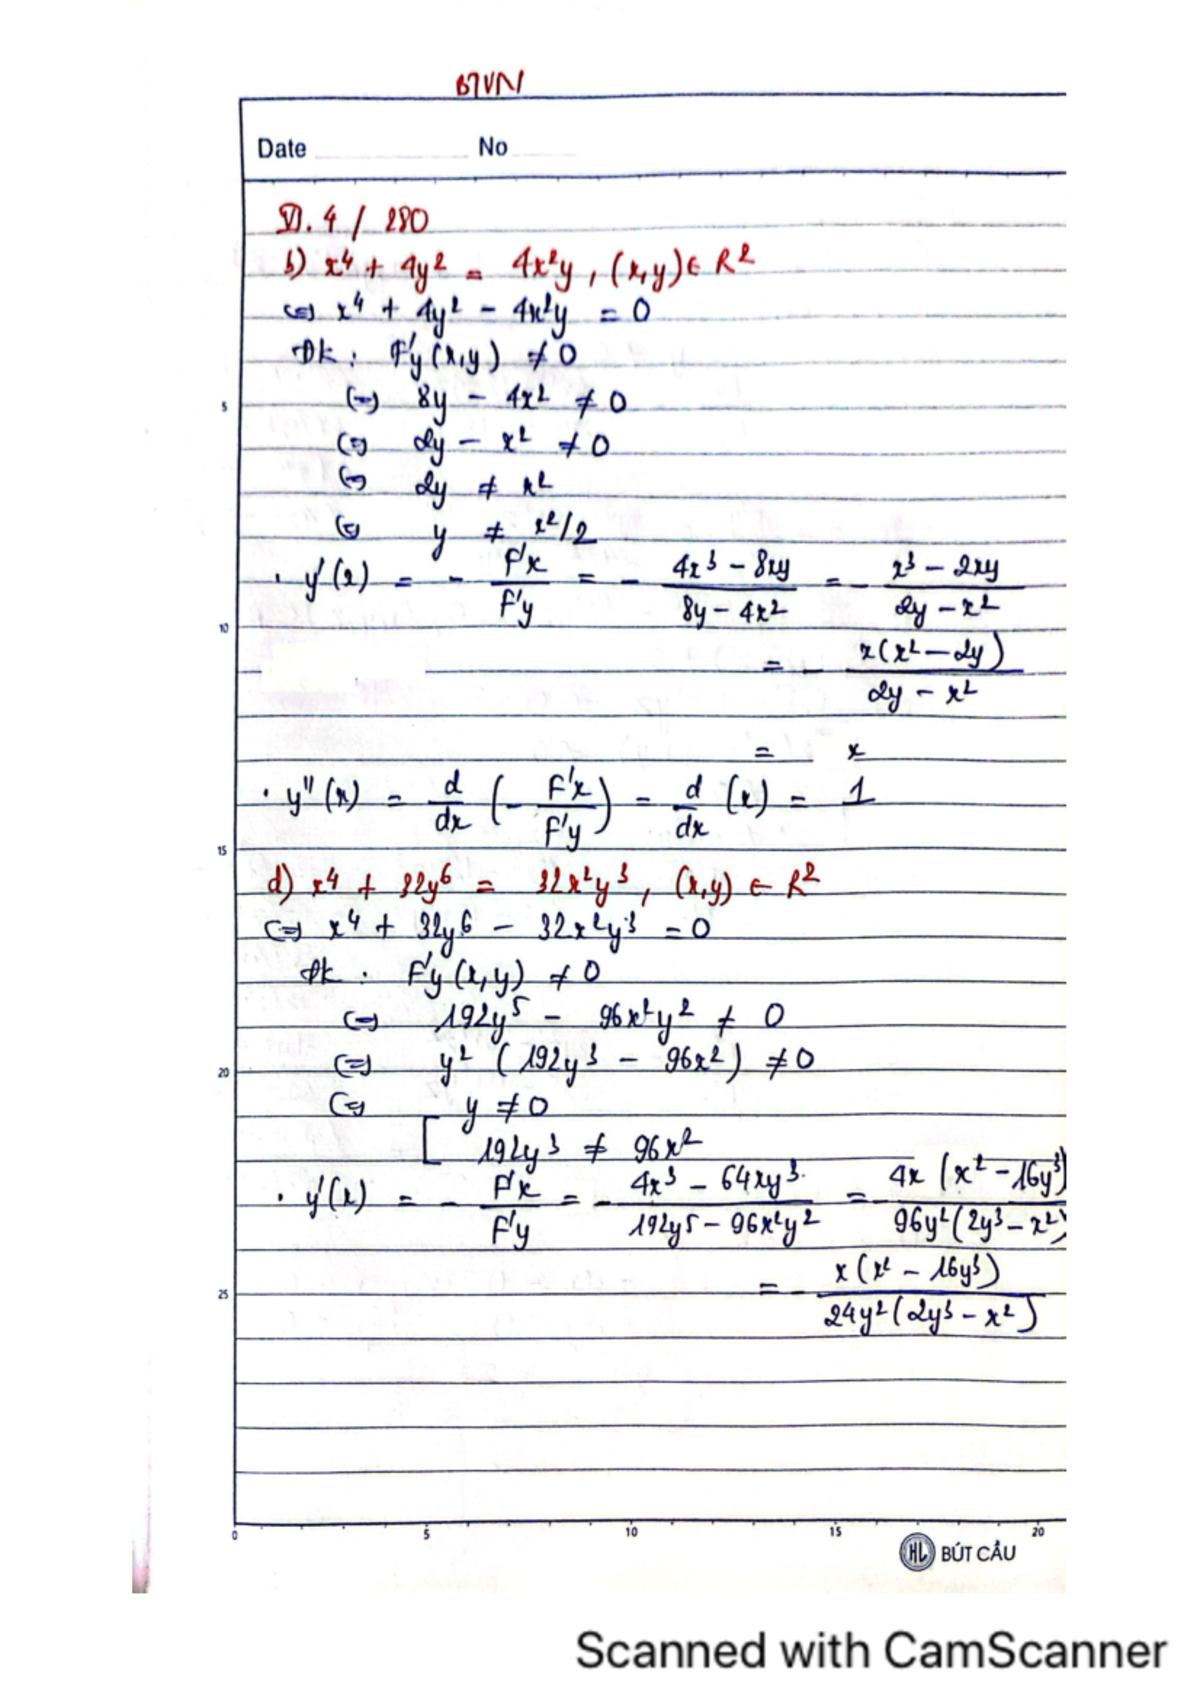 BTVN
Date No
VI. 4 / 280
b) x⁴ + 4y² = 4x²y , (x,y) ∈ R²
⇔ x⁴ + 4y² - 4x²y = 0
Đk : F'y (x,y) ≠ 0
⇔ 8y - 4x² ≠ 0
5
⇔ 2y - x² ≠ 0
⇔ 2y ≠ x²
⇔ y ≠ x²/2
· y'(x) = - F'x / F'y = - (4x³ - 8xy) / (8y - 4x²) = - (x³ - 2xy) / (2y - x²)
10
= - x(x² - 2y) / (2y - x²)
= x
· y''(x) = d/dx (- F'x / F'y) = d/dx (x) = 1
15
d) x⁴ + 32y⁶ = 32x²y³ , (x,y) ∈ R²
⇔ x⁴ + 32y⁶ - 32x²y³ = 0
Đk : F'y (x,y) ≠ 0
⇔ 192y⁵ - 96x²y² ≠ 0
20
⇔ y² (192y³ - 96x²) ≠ 0
⇔ [ y ≠ 0
192y³ ≠ 96x²
· y'(x) = - F'x / F'y = - (4x³ - 64xy³) / (192y⁵ - 96x²y²) = - 4x (x² - 16y³) / 96y² (2y³ - x²)
25
= - x (x² - 16y³) / 24y² (2y³ - x²)
0 5 10 15 20
HL BÚT CẦU
Scanned with CamScanner